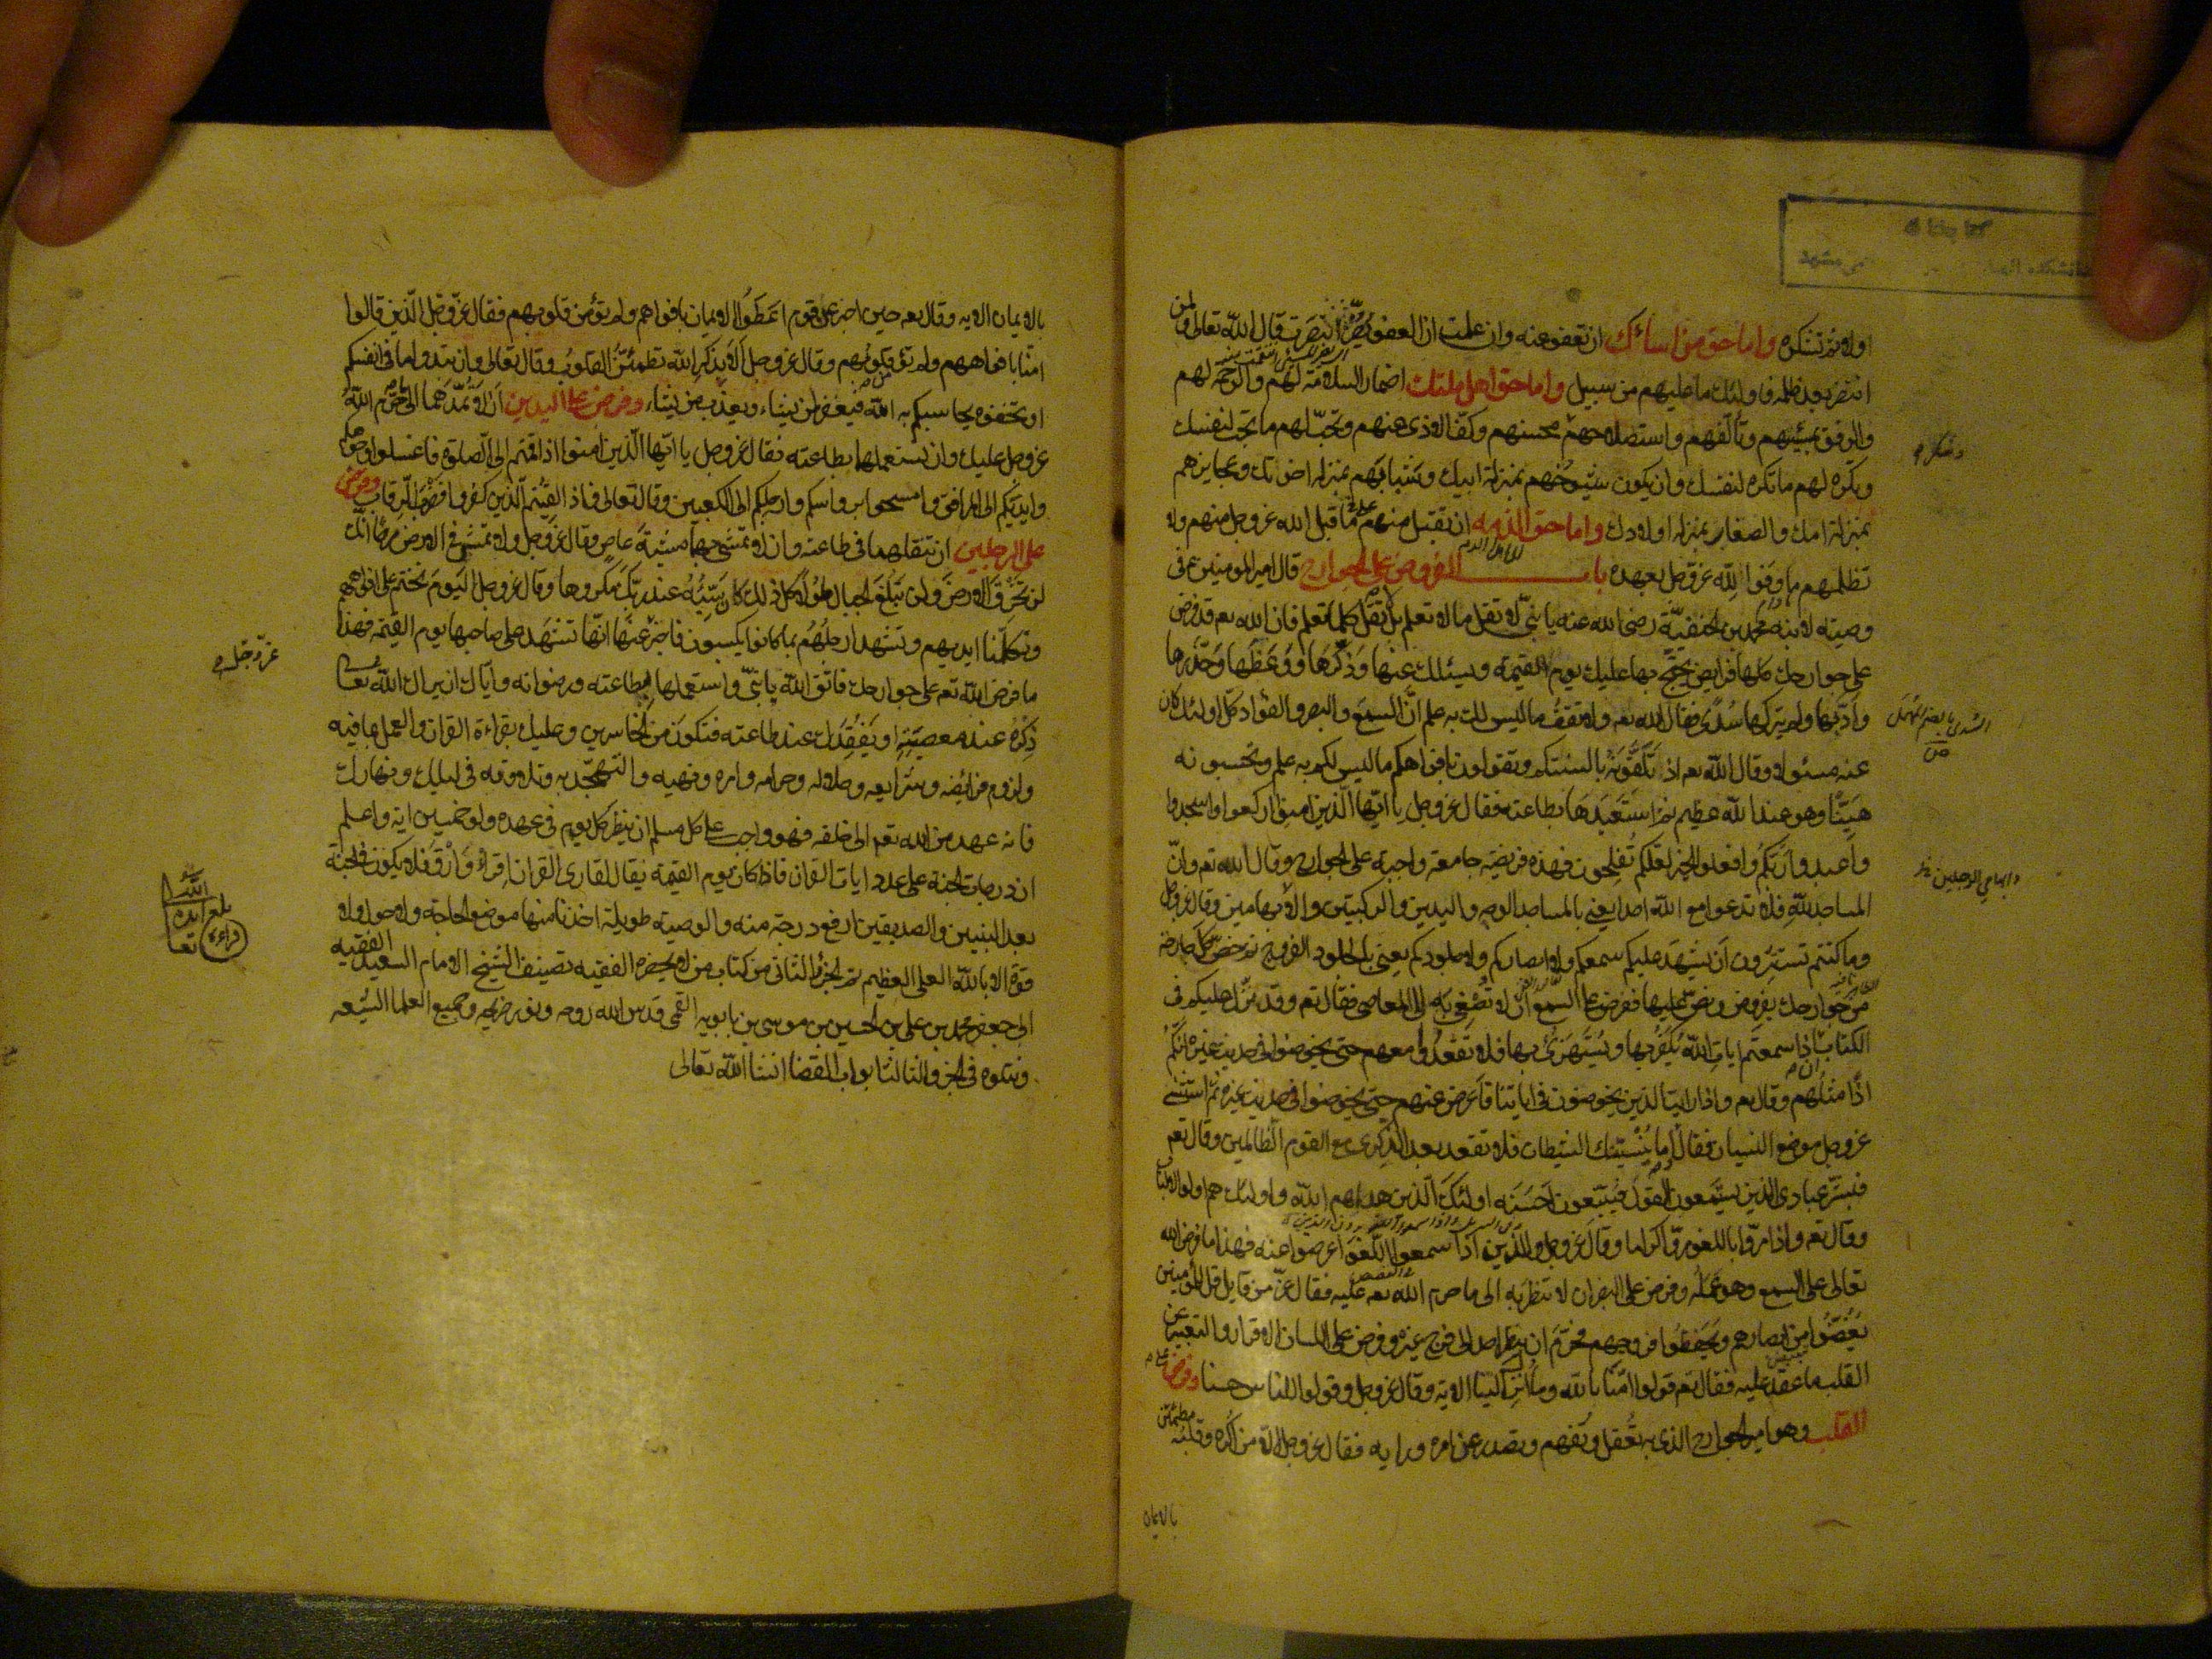 اولا ثم تشكره واما حق من اساءك ان تعفو عنه وان علمت ان العفو يضر انتصرت قال الله تعالى ولمن
انتصر بعد ظلمه فاولئك ما عليهم من سبيل واما حق اهل ملتك اضمار السلامة لهم والرحمة لهم
والرفق بمسيئهم وتألفهم واستصلاحهم وشكر محسنهم وكف الاذى عنهم وتحب لهم ما تحب لنفسك
وتكره لهم ما تكره لنفسك وان يكون شيوخهم بمنزلة ابيك وشبابهم بمنزلة اخوتك وعجايزهم
بمنزلة امك والصغار بمنزلة اولادك واما حق الذمة ان تقبل منهم ما قبل الله عز وجل منهم ولا
تظلمهم ما وفوا لله عز وجل بعهده باب الفروض على الجوارح قال امير المومنين ع فى
وصيته لابنه محمد بن الحنفية رضى الله عنه يا بنى لا تقل ما لا تعلم بل لا تقل كلما تعلم فان الله تعم قد فرض
على جوارحك كلها فرايض يحتج بها عليك يوم القيمة ويسئلك عنها وذكرها ووعظها وحذرها
وادبها ولم يتركها سدى فقال الله تعم ولا تقف ما ليس لك به علم ان السمع والبصر والفؤاد كل اولئك كان
عنه مسئولا وقال الله تعم اذ تلقونه بالسنتكم وتقولون بافواهكم ما ليس لكم به علم وتحسبونه
هينا وهو عند الله عظيم ثم استعبدها بطاعته فقال عز وجل يا ايها الذين امنوا اركعوا واسجدوا
واعبدوا ربكم وافعلوا الخير لعلكم تفلحون فهذه فريضة جامعة واجبة على الجوارح وقال الله تعم وان
المساجد لله فلا تدعوا مع الله احدا يعنى بالمساجد الوجه واليدين والركبتين والابهامين وقال عز وجل
وما كنتم تستترون ان يشهد عليكم سمعكم ولا ابصاركم ولا جلودكم يعنى بالجلود الفروج ثم خص كل جارحة
من جوارحك بفرض ونص عليها ففرض على السمع ان لا تصغى به الى المعاصى فقال تعم وقد نزل عليكم فى
الكتاب ان اذا سمعتم ايات الله يكفر بها ويستهزئ بها فلا تقعدوا معهم حتى يخوضوا فى حديث غيره انكم
اذا مثلهم وقال تعم واذا رايت الذين يخوضون فى اياتنا فاعرض عنهم حتى يخوضوا فى حديث غيره ثم استثنى
عز وجل موضع النسيان فقال واما ينسينك الشيطان فلا تقعد بعد الذكرى مع القوم الظالمين وقال تعم
فبشر عبادى الذين يستمعون القول فيتبعون احسنه اولئك الذين هديهم الله واولئك هم اولوا الالباب
وقال تعم واذا مروا باللغو مروا كراما وقال عز وجل والذين اذا سمعوا اللغو اعرضوا عنه فهذا ما فرض الله
تعالى على السمع وهو عمله وفرض على البصر ان لا تنظر به الى ما حرم الله تعم عليه فقال عز من قايل قل للمؤمنين
يغضوا من ابصارهم ويحفظوا فروجهم فحرم ان ينظر احد الى فرج غيره وفرض على اللسان الاقرار والتعبير عن
القلب ما عقد عليه فقال تعم قولوا امنا بالله وما انزل الينا الاية وقال عز وجل وقولوا للناس حسنا وفرض على
القلب وهو امير الجوارح الذى به تعقل وتفهم وتصدر عن امره ورايه فقال عز وجل الا من اكره وقلبه مطمئن
بالايمان
بالايمان الاية وقال تعم حين اخبر عن قوم اعطوا الايمان بافواههم ولم تؤمن قلوبهم فقال عز وجل الذين قالوا
امنا بافواههم ولم تؤمن قلوبهم وقال عز وجل الا بذكر الله تطمئن القلوب وقال تعالى وان تبدوا ما فى انفسكم
او تخفوه يحاسبكم به الله فيغفر لمن يشاء ويعذب من يشاء وفرض على اليدين ان لا تمدهما الى ما حرم الله
عز وجل عليك وان تستعملها بطاعته فقال عز وجل يا ايها الذين امنوا اذا قمتم الى الصلوة فاغسلوا وجوهكم
وايديكم الى المرافق وامسحوا برؤسكم وارجلكم الى الكعبين وقال تعالى فاذا لقيتم الذين كفروا فضرب الرقاب وفرض
على الرجلين ان تنقلهما فى طاعته وان لا تمشى بهما مشية عاص فقال عز وجل ولا تمش فى الارض مرحا انك
لن تخرق الارض ولن تبلغ الجبال طولا كل ذلك كان سيئه عند ربك مكروها وقال عز وجل اليوم نختم على افواههم
وتكلمنا ايديهم وتشهد ارجلهم بما كانوا يكسبون فاخبر عنها انها تشهد على صاحبها يوم القيمة فهذا
ما فرض الله تعم على جوارحك فاتق الله يا بنى واستعملها بطاعته ورضوانه واياك ان يراك الله تعالى
عز وجل
ذكره عند معصيته او يفقدك عند طاعته فتكون من الخاسرين وعليك بقراءة القران والعمل بما فيه
ولزوم فرائضه وشرايعه وحلاله وحرامه وامره ونهيه والتهجد به وتلاوته فى ليلك ونهارك
فانه عهد من الله تعم الى خلقه فهو واجب على كل مسلم ان ينظر كل يوم فى عهده ولو خمسين اية واعلم
ان درجات الجنة على عدد ايات القران فاذا كان يوم القيمة يقال لقارى القران اقرأ وارق فلا يكون فى الجنة
بعد النبيين والصديقين ارفع درجة منه والوصية طويلة اخذنا منها موضع الحاجة ولا حول ولا
قوة الا بالله العلى العظيم تم الجزء الثانى من كتاب من لا يحضره الفقيه تصنيف الشيخ الامام السعيد الفقيه
ابى جعفر محمد بن على بن الحسين بن موسى بن بابويه القمى قدس الله روحه ونور ضريحه وجميع العلما الشيعه
ويتلوه فى الجزو الثالث ابواب القضا انشا الله تعالى
بلغ
قراءة
ايده
الله
تعا